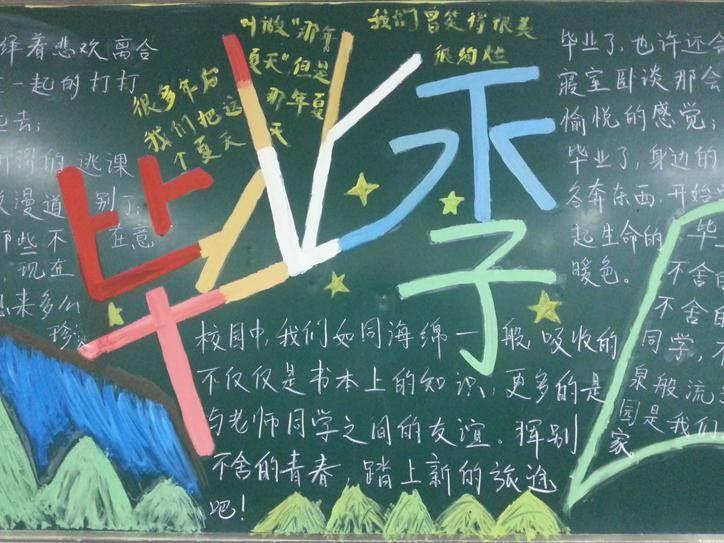 绎着悲欢离合
一起的打打
去；
逃课
漫道 别了；
那些不 在意
现在
出来多么
珍
很多年后
我们把这
个夏天
叫做“那年
夏天”但是
那年夏
天
我们曾笑得很美
很绚烂
毕业季
毕业了，也许还会
寝室卧谈那会
愉悦的感觉；
毕业了，身边的
各奔东西，开始
起生命的 毕
暖色。 不舍
不舍
同学，
泉般流
园是我们
家
校园中，我们如同海绵一般吸收的
不仅仅是书本上的知识，更多的是
与老师同学之间的友谊。挥别
不舍的青春，踏上新的旅途
吧！